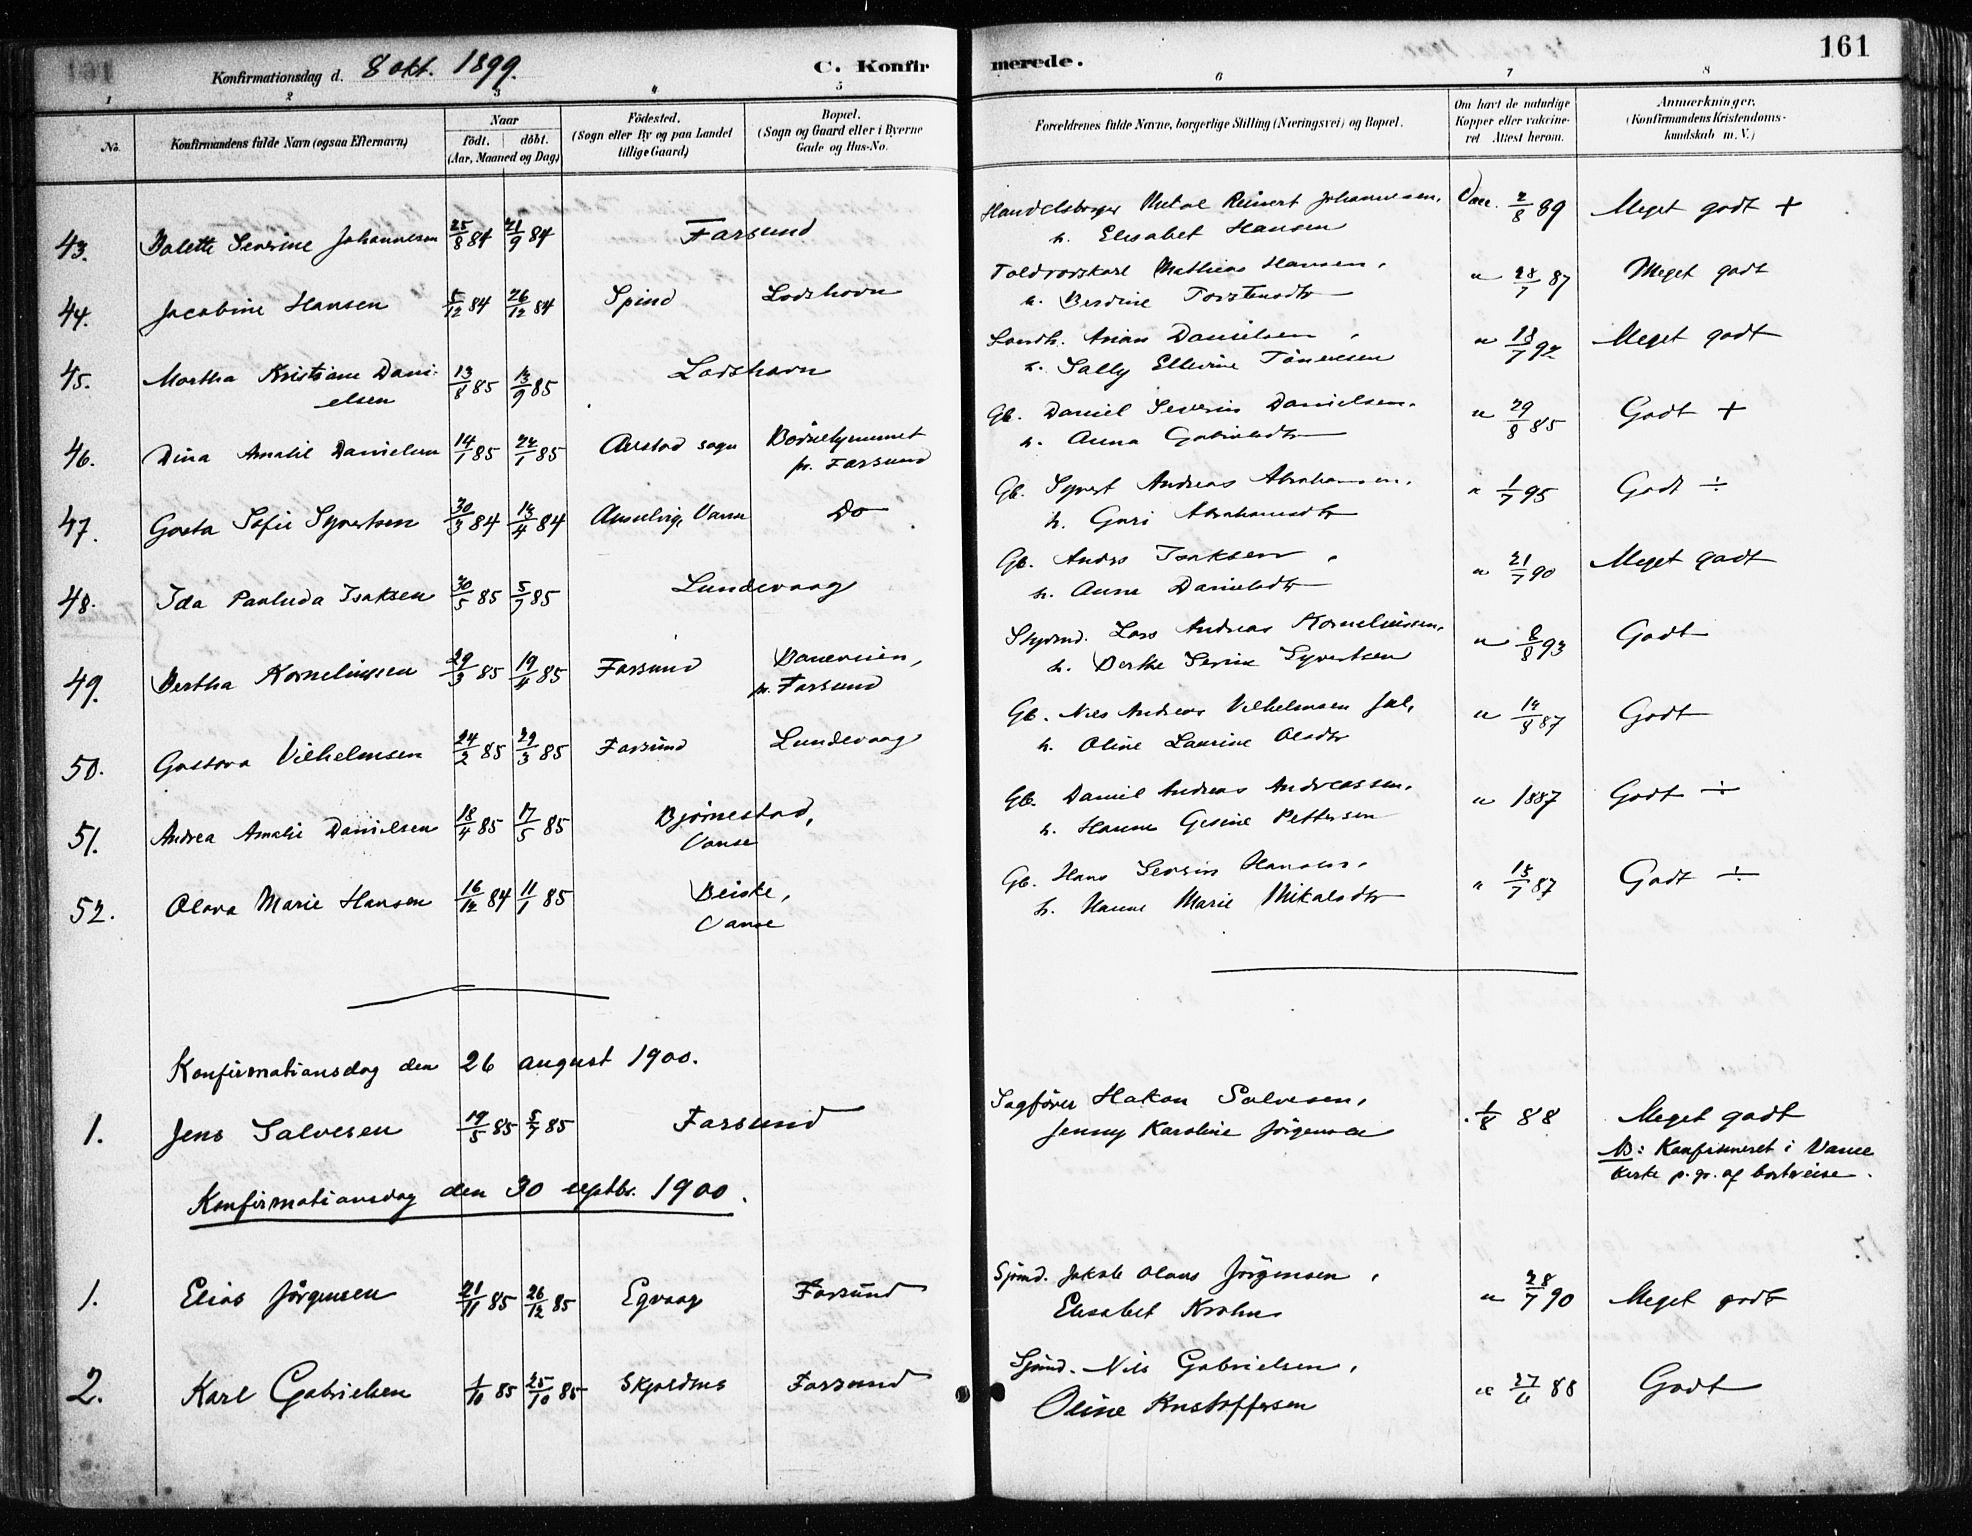 161
Konfirmationsdag d. 8 okt. 1899.
C. Konfirmerede.
1 2 3 4 5 6 7 8
No.
Konfirmandens fulde Navn (ogsaa Efternavn)
Naar
født. døbt.
(Aar, Maaned og Dag)
Fødested.
(Sogn eller By og paa Landet
tillige Gaard)
Bopæl.
(Sogn og Gaard eller i Byerne
Gade og Hus-No.
Forældrenes fulde Navne, borgerlige Stilling (Næringsvei) og Bopæl.
Om havt de naturlige
Kopper eller vaccine-
ret Attest herom.
Anmærkninger,
(Konfirmandens Kristendoms-
kundskab m. V.)
43. Bolette Severine Johannesen 25/8 84 21/9 84 Farsund
Handelsborger Reinert Johannesen,
h. Elisabet Hansen
Vacc. 2/8 89 Meget godt +
44. Jacobine Hansen 5/12 84 26/12 84 Spind Loshavn
Toldrorskarl Mathias Hansen,
h. Berdine Torstensdtr
" 28/7 87 Meget godt
45. Martha Kristiane Dani-
elsen 13/8 85 13/9 85 Loshavn
Arian Danielsen,
h. Sally Ellevine Tönnesen
" 18/7 92 Meget godt
46. Dina Amalie Danielsen 14/1 85 22/1 85 Austad sogn
pr. Farsund
Gb. Daniel Severin Danielsen,
h. Anna Gabrielsdtr
" 29/8 85 Godt +
47. Gusta Sofie Syvertsen 30/3 84 13/4 84 Vanse Do
Gb. Syvert Andreas Abrahamsen,
h. Guri Abrahamsdtr
" 1/7 95 Godt ÷
48. Ida Paulida Isaksen 30/5 85 5/7 85 Lundevaag
Gb. Anders Isaksen,
h. Anne Danielsdtr
" 21/7 90 Meget godt
49. Bertha Korneliussen 29/3 85 19/4 85 Farsund
pr. Farsund
Styrmd. Lars Andreas Kornelius­sen,
h. Berthe Serine Syvertsen
" 8/8 93 Godt
50. Gustava Vilhelmsen 24/2 85 29/3 85 Farsund Lundevaag
Gb. Nils Andreas Vilhelmsen
h. Oline Laurine Olsdtr
" 14/8 87 Godt
51. Andrea Amalie Danielsen 18/4 85 17/5 85 Bjørnestad,
Vanse
Gb. Daniel Andreas Andreassen,
h. Hanne Gesine Pettersen
" 1887 Godt ÷
52. Olava Marie Hansen 16/12 84 11/1 85 Beiske,
Vanse
Gb. Hans Severin Hansen,
h. Hanne Marie Mikalsdtr
" 15/7 87 Godt ÷
Konfirmationsdag den 26 august 1900.
1. Jens Salvesen 19/5 85 5/7 85 Farsund
Sagfører Hakon Salvesen,
Jenny Karoline Jörgensen
1/8 88 Meget godt
NB: Konfirmeret i Vanse
kirke p. gr. af bortreise.
Konfirmationsdag den 30 septbr. 1900.
1. Elias Jörgensen 21/11 85 26/12 85 Egvaag Farsund
Sjömd. Jakob Olaus Jörgensen,
Elisabet Krohn
" 28/7 90 Meget godt
2. Karl Gabrielsen 1/10 85 25/10 85 Skjoldnes Farsund
Sjömd. Nils Gabrielsen,
Oline Kristoffersen
" 27/6 88 Godt